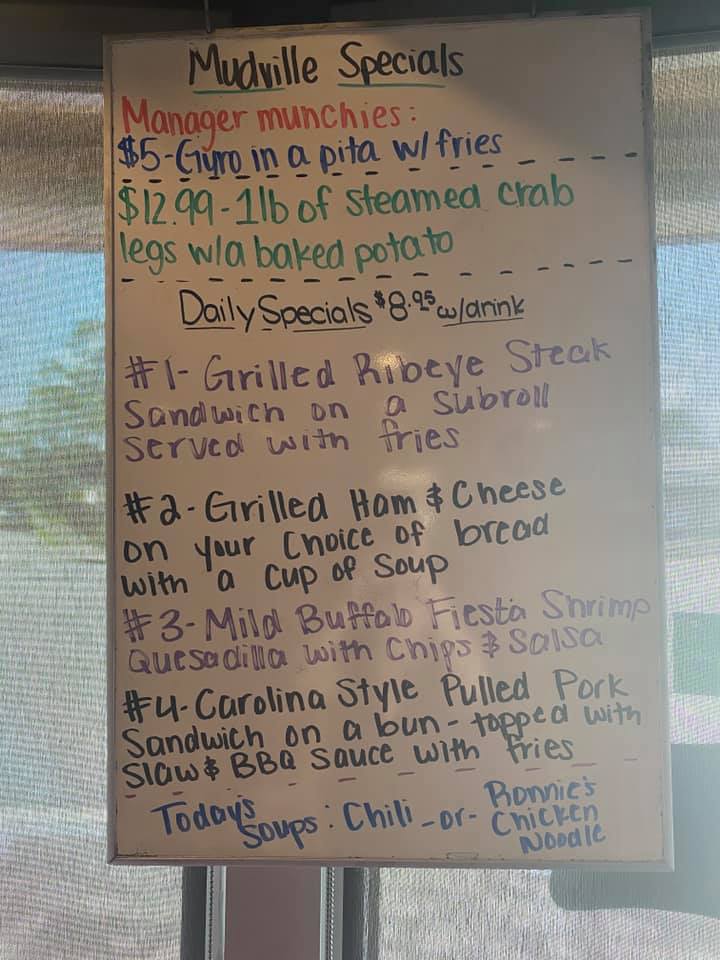 Mudville Specials
Manager munchies:
$5-Gyro in a pita w/ fries
$12.99-1lb of steamed crab
legs w/a baked potato
Daily Specials $8.95 w/drink
#1- Grilled Ribeye Steak
Sandwich on a Subroll
served with fries
#2-Grilled Ham & Cheese
on your Choice of bread
with a cup of Soup
#3-Mild Buffalo Fiesta Shrimp
Quesadilla with Chips & Salsa
#4-Carolina Style Pulled Pork
Sandwich on a bun - topped with
Slaw & BBQ Sauce with fries
Today's Soups: Chili -or- Ronnie's
Chicken
Noodle